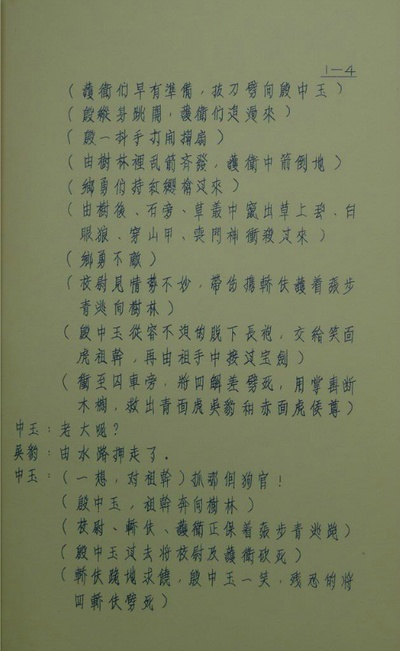 1-4
(護衛们早有準備，拔刀劈向殷中玉)
(殷縱身跳開，護衛们追過來)
(殷一抖手打開摺扇)
(由樹林裡乱箭齐發，護衛中箭倒地)
(鄉勇伯持紅纓槍过來)
(由樹後、石旁、草叢中竄出草上飛、白
眼狼、穿山甲、喪門神衝殺过來)
(鄉勇不敵)
(校尉見情勢不妙，帶着轎伕護着張步
青逃向樹林)
(殷中玉從容不迫的脱下長袍，交給笑面
虎祖幹，再由祖手中接过宝劍)
(衝至囚車旁，將四解差劈死，用掌震断
木柵，救出青面虎吳豹和赤面虎侯尊)
中玉：老大呢？
吳豹：由水路押走了．
中玉：(一想，对祖幹)抓那個狗官！
(殷中玉，祖幹奔向樹林)
(校尉、轎伕、護衛正保着張步青逃跑)
(殷中玉过去將校尉及護衛砍死)
(轎伕跪地求饒，殷中玉一笑，残忍的將
四轎伕劈死)